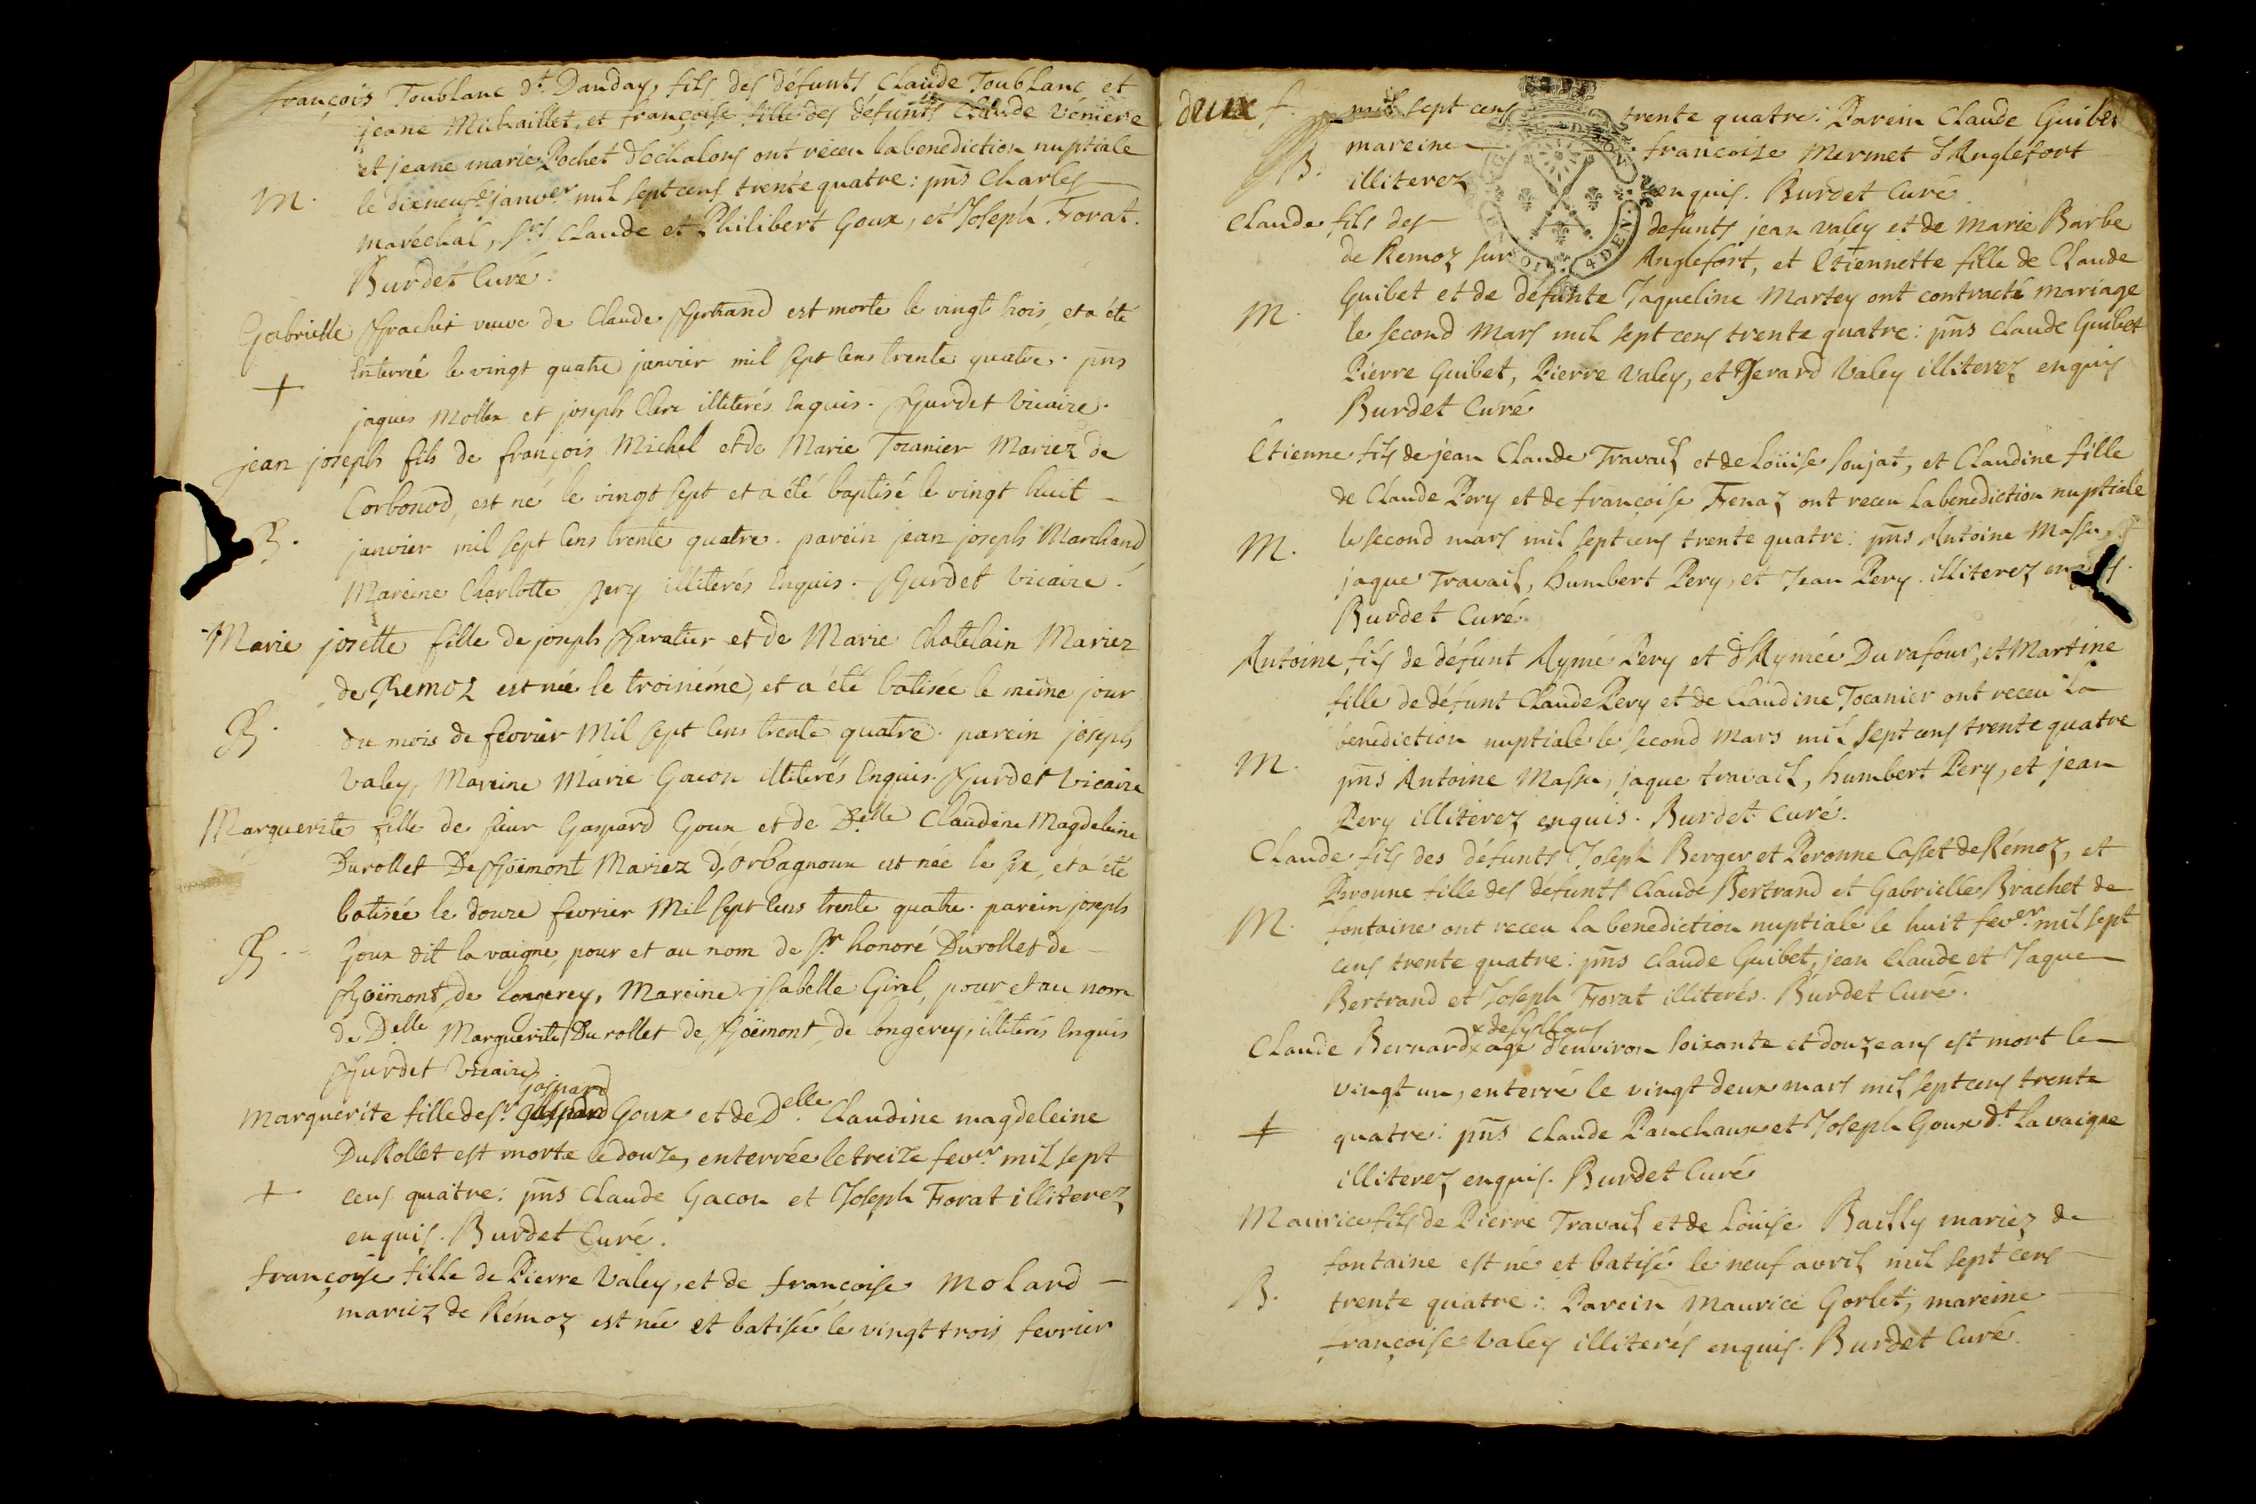 françois Toublanc d.t Danday, fils des défunts Claude Toublanc et
jeane Michaillet, et françoise fille des defunts Claude Véniere
et jeane marie Pochet d'échalons ont receu la benediction nuptiale
M. le dixneuf.e janv.er mil sept cens trente quatre: pñs Charles
maréchal, S.rs Claude et Philibert Goux, et Joseph Forat.
Burdet Curé.
Gabrielle Brachet veuve de Claude Bertrand est morte le vingt trois, et a été
+ Enterrée le vingt quatre janvier mil sept cens trente quatre. pñs
jaques Mollex et joseph Clerc illiterés Enquis. Burdet Vicaire.
jean joseph fils de françois Michel et de Marie Tocanier Mariez de
Corbonod, est né le vingt sept et a été baptisé le vingt huit
B. janvier mil sept cens trente quatre. paréin jean joseph Marchand
Mareine Charlotte pery illiterés Enquis. Burdet Vicaire.
Marie josette fille de joseph Baratier et de Marie Chatelain Mariez
de Remoz est née le troisiéme, et a été batisée le meme jour
B. du mois de fevrier Mil sept cens trente quatre. parein joseph
Valey, Mareine Marie Gacon illiterés Enquis. Burdet Vicaire
Marguerite fille de sieur Gaspard Goux et de D.elle Claudine Magdeleine
Durollet De Boëmont Mariez d'orbagnoux est née le six, et a été
batisée le douze fevrier Mil sept cens trente quatre. parein joseph
B. Goux dit la vaigne, pour et au nom de S.r honoré Durollet de
Boëmont, de Longerey, Mareine jsabelle Girel, pour et au nom
de D.elle Marguerite Durollet de Boëmont, de longerey, illiterés Enquis
Burdet Vicaire
Gaspard
Marguerite fille de S.r Goux et de D.elle Claudine magdeleine
DuRollet est morte le douze, enterrée le treize fev.er mil sept
+ cens quatre: pñs Claude Gacon et Joseph Forat illiterez
enquis. Burdet Curé.
françoise fille de Pierre Valey, et de françoise Molard
mariez de Rémoz est née et batisée le vingt trois fevrier
deux f. mil sept cens trente quatre: Parein Claude Guibet
B. mareine françoise Mermet d'Anglefort
illiterez enquis. Burdet Curé
Claude fils des defunts jean valey et de Marie Barbe
de Remoz sur Anglefort, et Etiennette fille de Claude
Guibet et de defunte Jaqueline Martey ont contracté mariage
M. le second Mars mil sept cens trente quatre: pñs Claude Guibet
Pierre Guibet, Pierre Valey, et Gerard Valey illiterez enquis
Burdet Curé
Etienne fils de jean Claude Travail et de Loüise soujat, et Claudine fille
de Claude Pery et de françoise Frenaz ont receu la benediction nuptiale
M. le second mars mil sept cens trente quatre: pñs Antoine Massu
jaque Travail, humbert Pery, et Jean Pery. illiterez enquis.
Burdet Curé.
Antoine fils de défunt Aymé Pery et d'Aymée Durafour, et Martine
fille de défunt Claude Pery et de Claudine Tocanier ont receu la
benediction nuptiale le second Mars mil sept cens trente quatre
M. pñs Antoine Massu, jaque travail, humbert Pery, et jean
Pery illiterez enquis. Burdet Curé.
Claude fils des défunts Joseph Berger et Peronne Casset de Rémoz, et
Peronne fille des défunts Claude Bertrand et Gabrielle Brachet de
M. fontaine ont receu la benediction nuptiale le huit fev.er mil sept
cens trente quatre: pñs Claude Guibet, jean Claude et Jaque
Bertrand et Joseph Forat illiterés. Burdet Curé.
Claude Bernard x agé d'environ soixante et douze ans est mort le
vingt un, enterré le vingt deux mars mil sept cens trente
+ quatre: pñs Claude Panchaux et Joseph Goux d.t Lavaigne
illiterez enquis. Burdet Curé
Maurice fils de Pierre Travail et de Loüise Bailly mariez de
fontaine est né et batisé le neuf avril mil sept cens
B. trente quatre: Parein Maurice Gorlet, mareine
françoise Valey illiterés enquis. Burdet Curé.